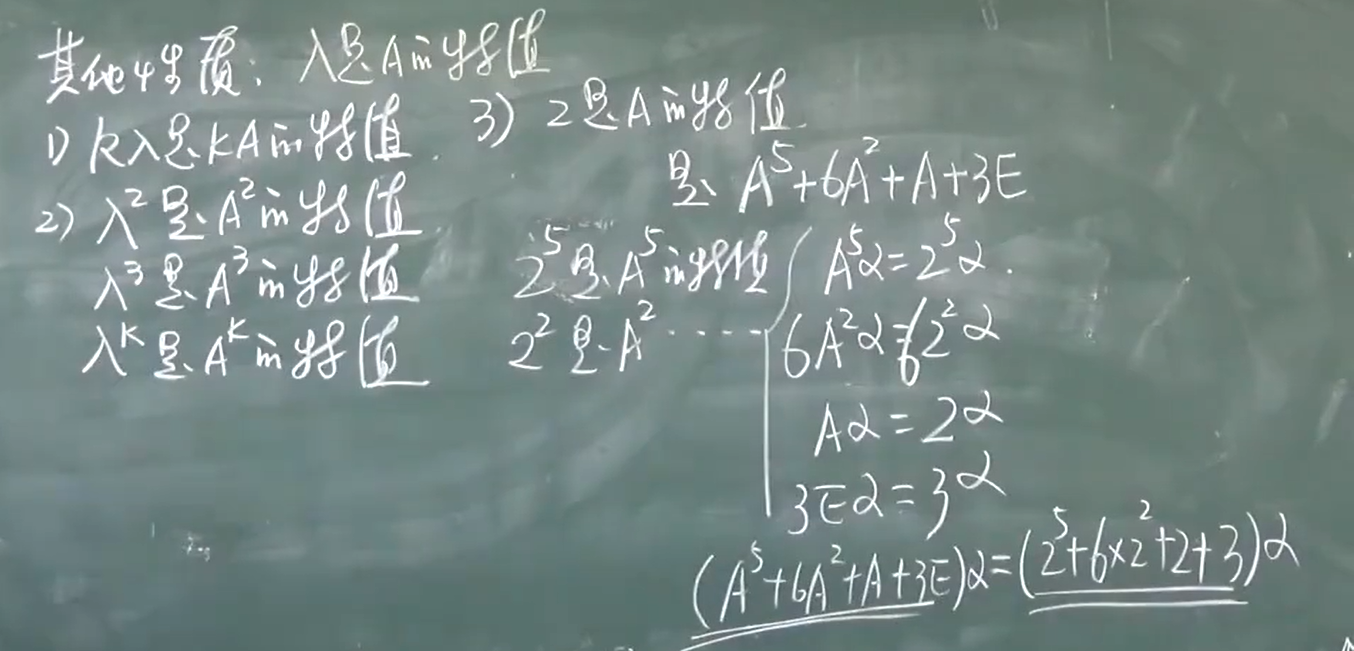 其他性质：λ是A的特值
1) kλ是kA的特值.
2) λ²是A²的特值
λ³是A³的特值
λᵏ是Aᵏ的特值
3) 2是A的特值
是 A⁵+6A²+A+3E
2⁵是A⁵的特值
2²是A² ·····
A⁵α=2⁵α.
6A²α=6 2²α
Aα=2α
3Eα=3α
(A⁵+6A²+A+3E)α=(2⁵+6×2²+2+3)α